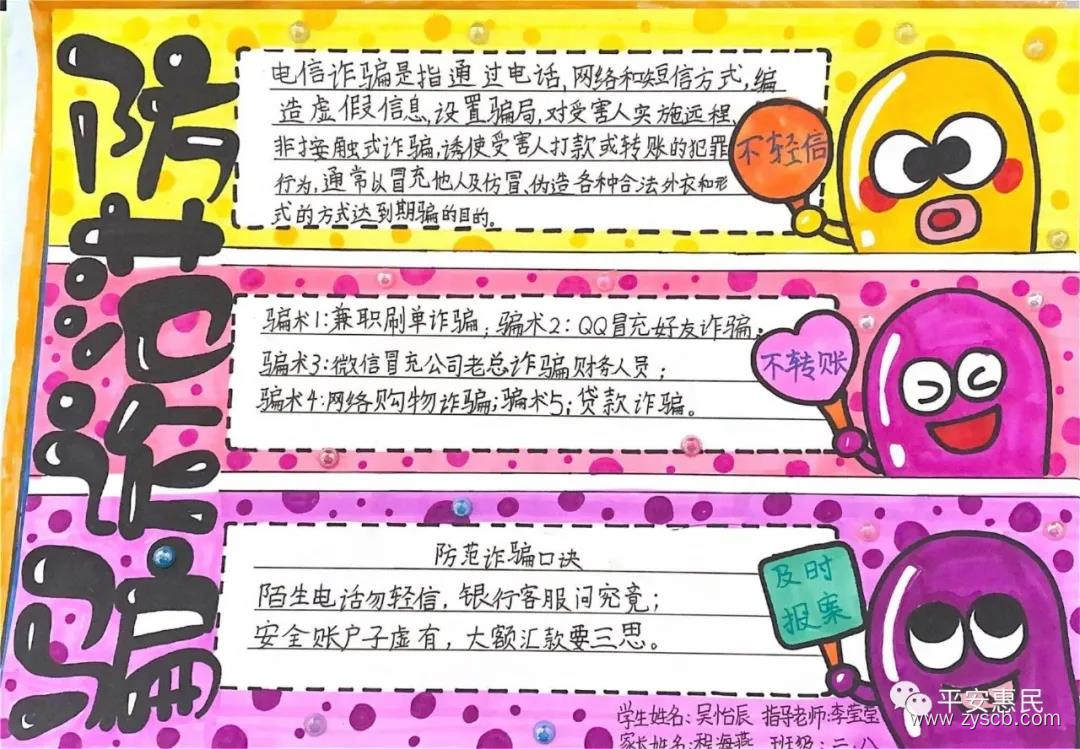 防范诈骗
电信诈骗是指通过电话,网络和短信方式,编
造虚假信息,设置骗局,对受害人实施远程,
非接触式诈骗,诱使受害人打款或转账的犯罪
行为,通常以冒充他人及仿冒,伪造各种合法外衣和形
式的方式达到期骗的目的。
不轻信
骗术1:兼职刷单诈骗;骗术2:QQ冒充好友诈骗;
骗术3:微信冒充公司老总诈骗财务人员;
骗术4:网络购物诈骗;骗术5;贷款诈骗。
不转账
防范诈骗口诀
陌生电话勿轻信,银行客服问究竟;
安全账户子虚有,大额汇款要三思。
及时
报案
学生姓名:吴怡辰 指导老师:李莹莹
家长姓名:程海燕 班级:二.八
平安惠民
www.zyscb.com